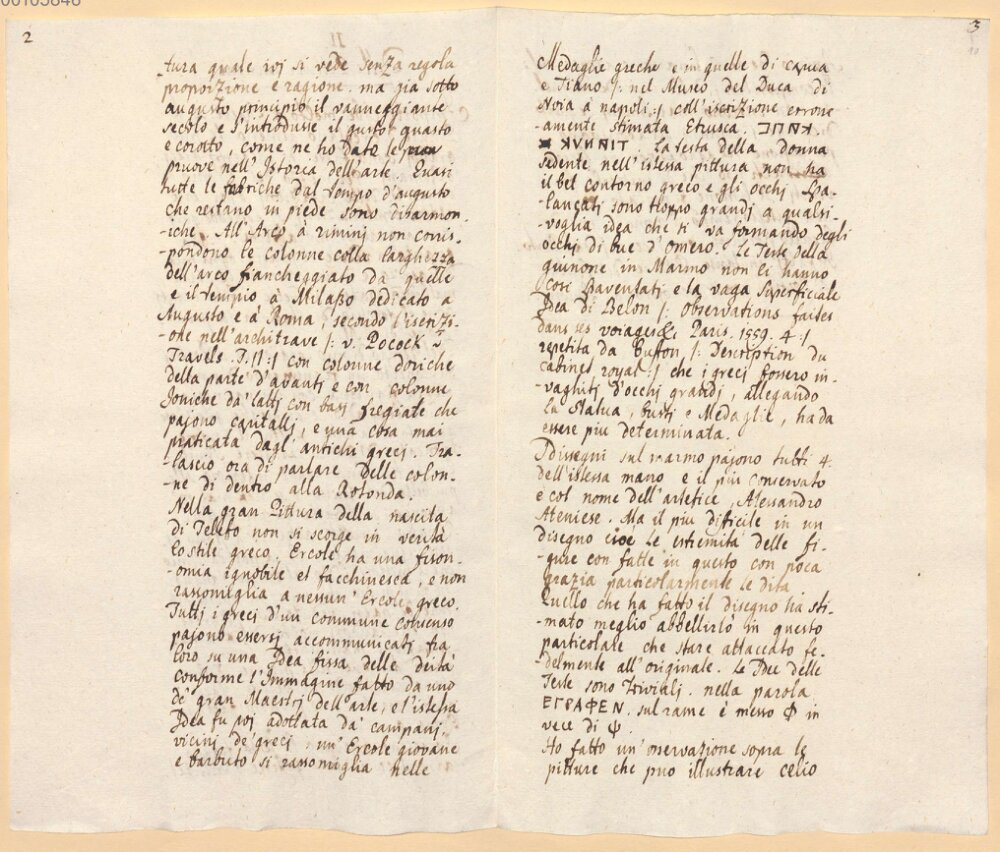 00105846
2
tura quale voi si vede senza regola
proporzione e ragione. ma già sotto
augusto principiò il vanneggiante
secolo e s'introdusse il gusto guasto
e corotto, come ne ho date le
pruove nell'Istoria dell'arte. Quasi
tutte le fabriche dal tempo d'augusto
che restano in piede sono disarmon-
-iche. All'Arco à rimini non corris-
-pondono le colonne colla larghezza
dell'arco fiancheggiato da quelle
e il tempio à Milasso dedicato a
Augusto e à Roma, secondo l'iscrizi-
-one nell'architrave /: v. Pocock's
Travels. T. II :/ con colonne doriche
della parte d'avanti e con colonne
Joniche da' lati con basi fregiate che
pajono capitalli, e una cosa mai
praticata dagl'antichi greci. Tra-
-lascio ora di parlare delle colon-
-ne di dentro alla Rotonda.
Nella gran Pittura della nascita
di Telefo non si scorge in verità
lo stile greco. Ercole ha una fison-
-omia ignobile et facchinesca, e non
rassomiglia a nessun' Ercole greco.
Tutti i greci d'un commune consenso
pajono essersi accommunicati fra
loro su una Idea fissa delle deità
conforme l'Immagine fatto da uno
de' gran Maestri dell'arte, e l'istessa
Idea fu poi adottata da' campani,
vicini de' greci: un' Ercole giovane
e barbuto si rassomiglia nelle
3
Medaglie greche e in quelle di capua
e Tiano /: nel Museo del Duca di
Noia à napoli :/ coll'iscrizione errone
-amente stimata Etrusca.
La testa della donna
sedente nell'istessa pittura non ha
il bel contorno greco e gli occhj spa-
-lancati sono troppo grandj a qualsi-
-voglia idea che ti va formando degli
occhj di bue d'Omero. Le Teste della
giunone in Marmo non li hanno
cosi spaventati e la vaga superficiale
Idea di Belon /: observations faites
dans ses voiages &c Paris. 1559. 4 :/
repetita da Buffon, /: Description du
cabinet royal :/ che i greci fossero in-
-vaghiti d'occhj grandj, allegando
la statua, Busti e Medaglie, ha da
essere piu determinata.
I disegni sul marmo pajono tutti 4.
dell'istessa mano e il piu conservato
e col nome dell'artefice, Alessandro
Ateniese. Ma il piu dificile in un
disegno cioè le estremità delle fi-
-gure con fatte in questo con poca
grazia particolarmente le dita
Quello che ha fatto il disegno ha sti-
-mato meglio abbellirlo in questo
particolare che stare attaccato fe-
-delmente all'originale. Le Idee delle
Teste sono triviali. nella parola
ΕΓΡΑΦΕΝ, sul rame è messo Φ in
vece di ψ.
Ho fatto un'osservazione sopra le
pitture che può illustrare celio